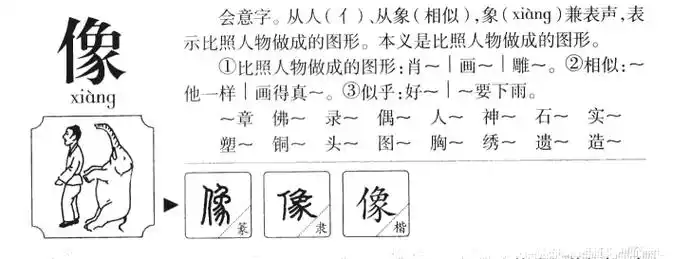 像
xiàng
会意字。从人(亻)、从象(相似),象(xiàng)兼表声,表
示比照人物做成的图形。本义是比照人物做成的图形。
①比照人物做成的图形:肖～｜画～｜雕～。②相似:～
他一样｜画得真～。③似乎:好～｜～要下雨。
～章 佛～ 录～ 偶～ 人～ 神～ 石～ 实～
塑～ 铜～ 头～ 图～ 胸～ 绣～ 遗～ 造～
像 篆 像 隶 像 楷